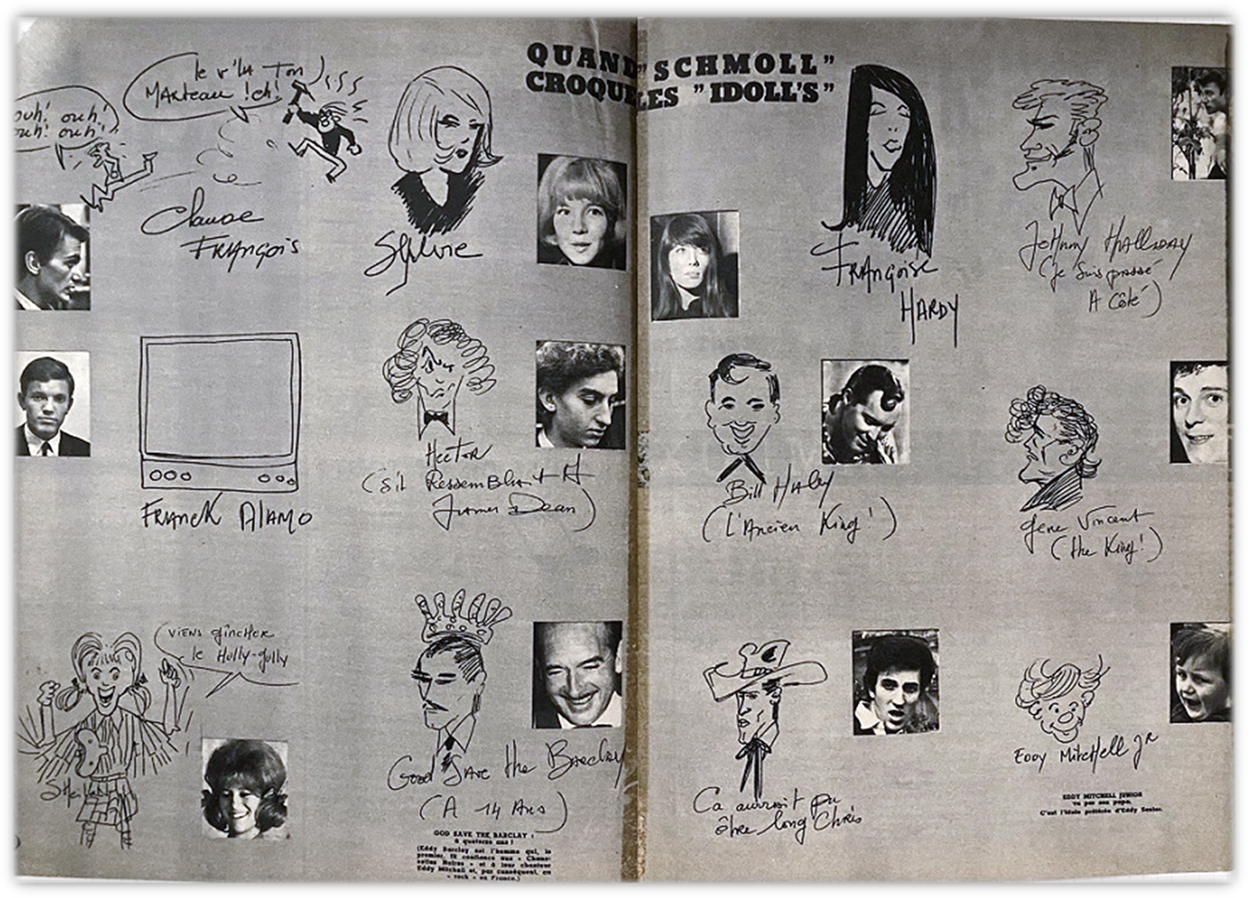 QUAND "SCHMOLL"
CROQUE LES "IDOLL'S"
ouh! ouh!
ouh! ouh!
le v'la ton
Marteau! eh!
Claude
François
Sylvie
Françoise
HARDY
Johnny Halliday
(je suis passé
A Côté)
FRANCK ALAMO
Hector
(s'il Ressemblait A
James Dean)
Bill Haley
(L'Ancien King!)
Gene Vincent
(the King!)
VIENS
le Hully-gully
Sheila
Good Save the Barclay
(A 14 Ans)
GOD SAVE THE BARCLAY !
à quatorze ans !
(Eddy Barclay est l'homme qui, le
premier, fit confiance aux « Chaus-
settes Noires » et à leur chanteur
Eddy Mitchell et, par conséquent, au
« rock » en France.)
Ca aurait pu
être long Chris
EDDY MITCHELL Jr
EDDY MITCHELL JUNIOR
vu par son papa.
C'est l'idole préférée d'Eddy Senior.